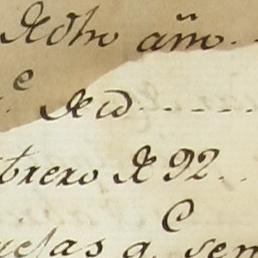 de dho año.
e de id
brero de 92..
e
as q. sem